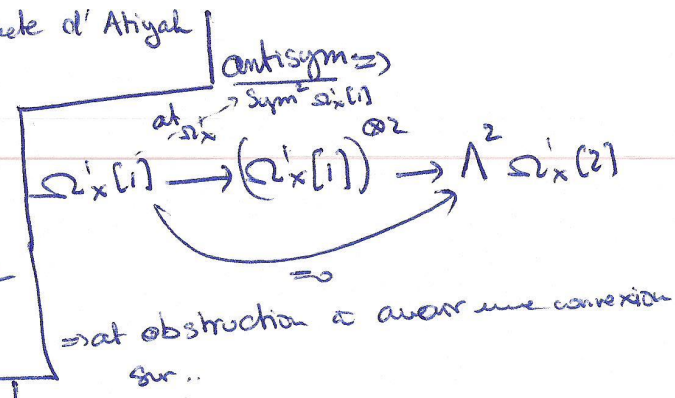 d'Atiyah
antisym =>
Sym² Ω¹x[1]
at Ω¹x
Ω¹x[1] → (Ω¹x[1])^⊗2 → Λ² Ω¹x[2]
=0
=> at obstruction à avoir une connexion
sur..